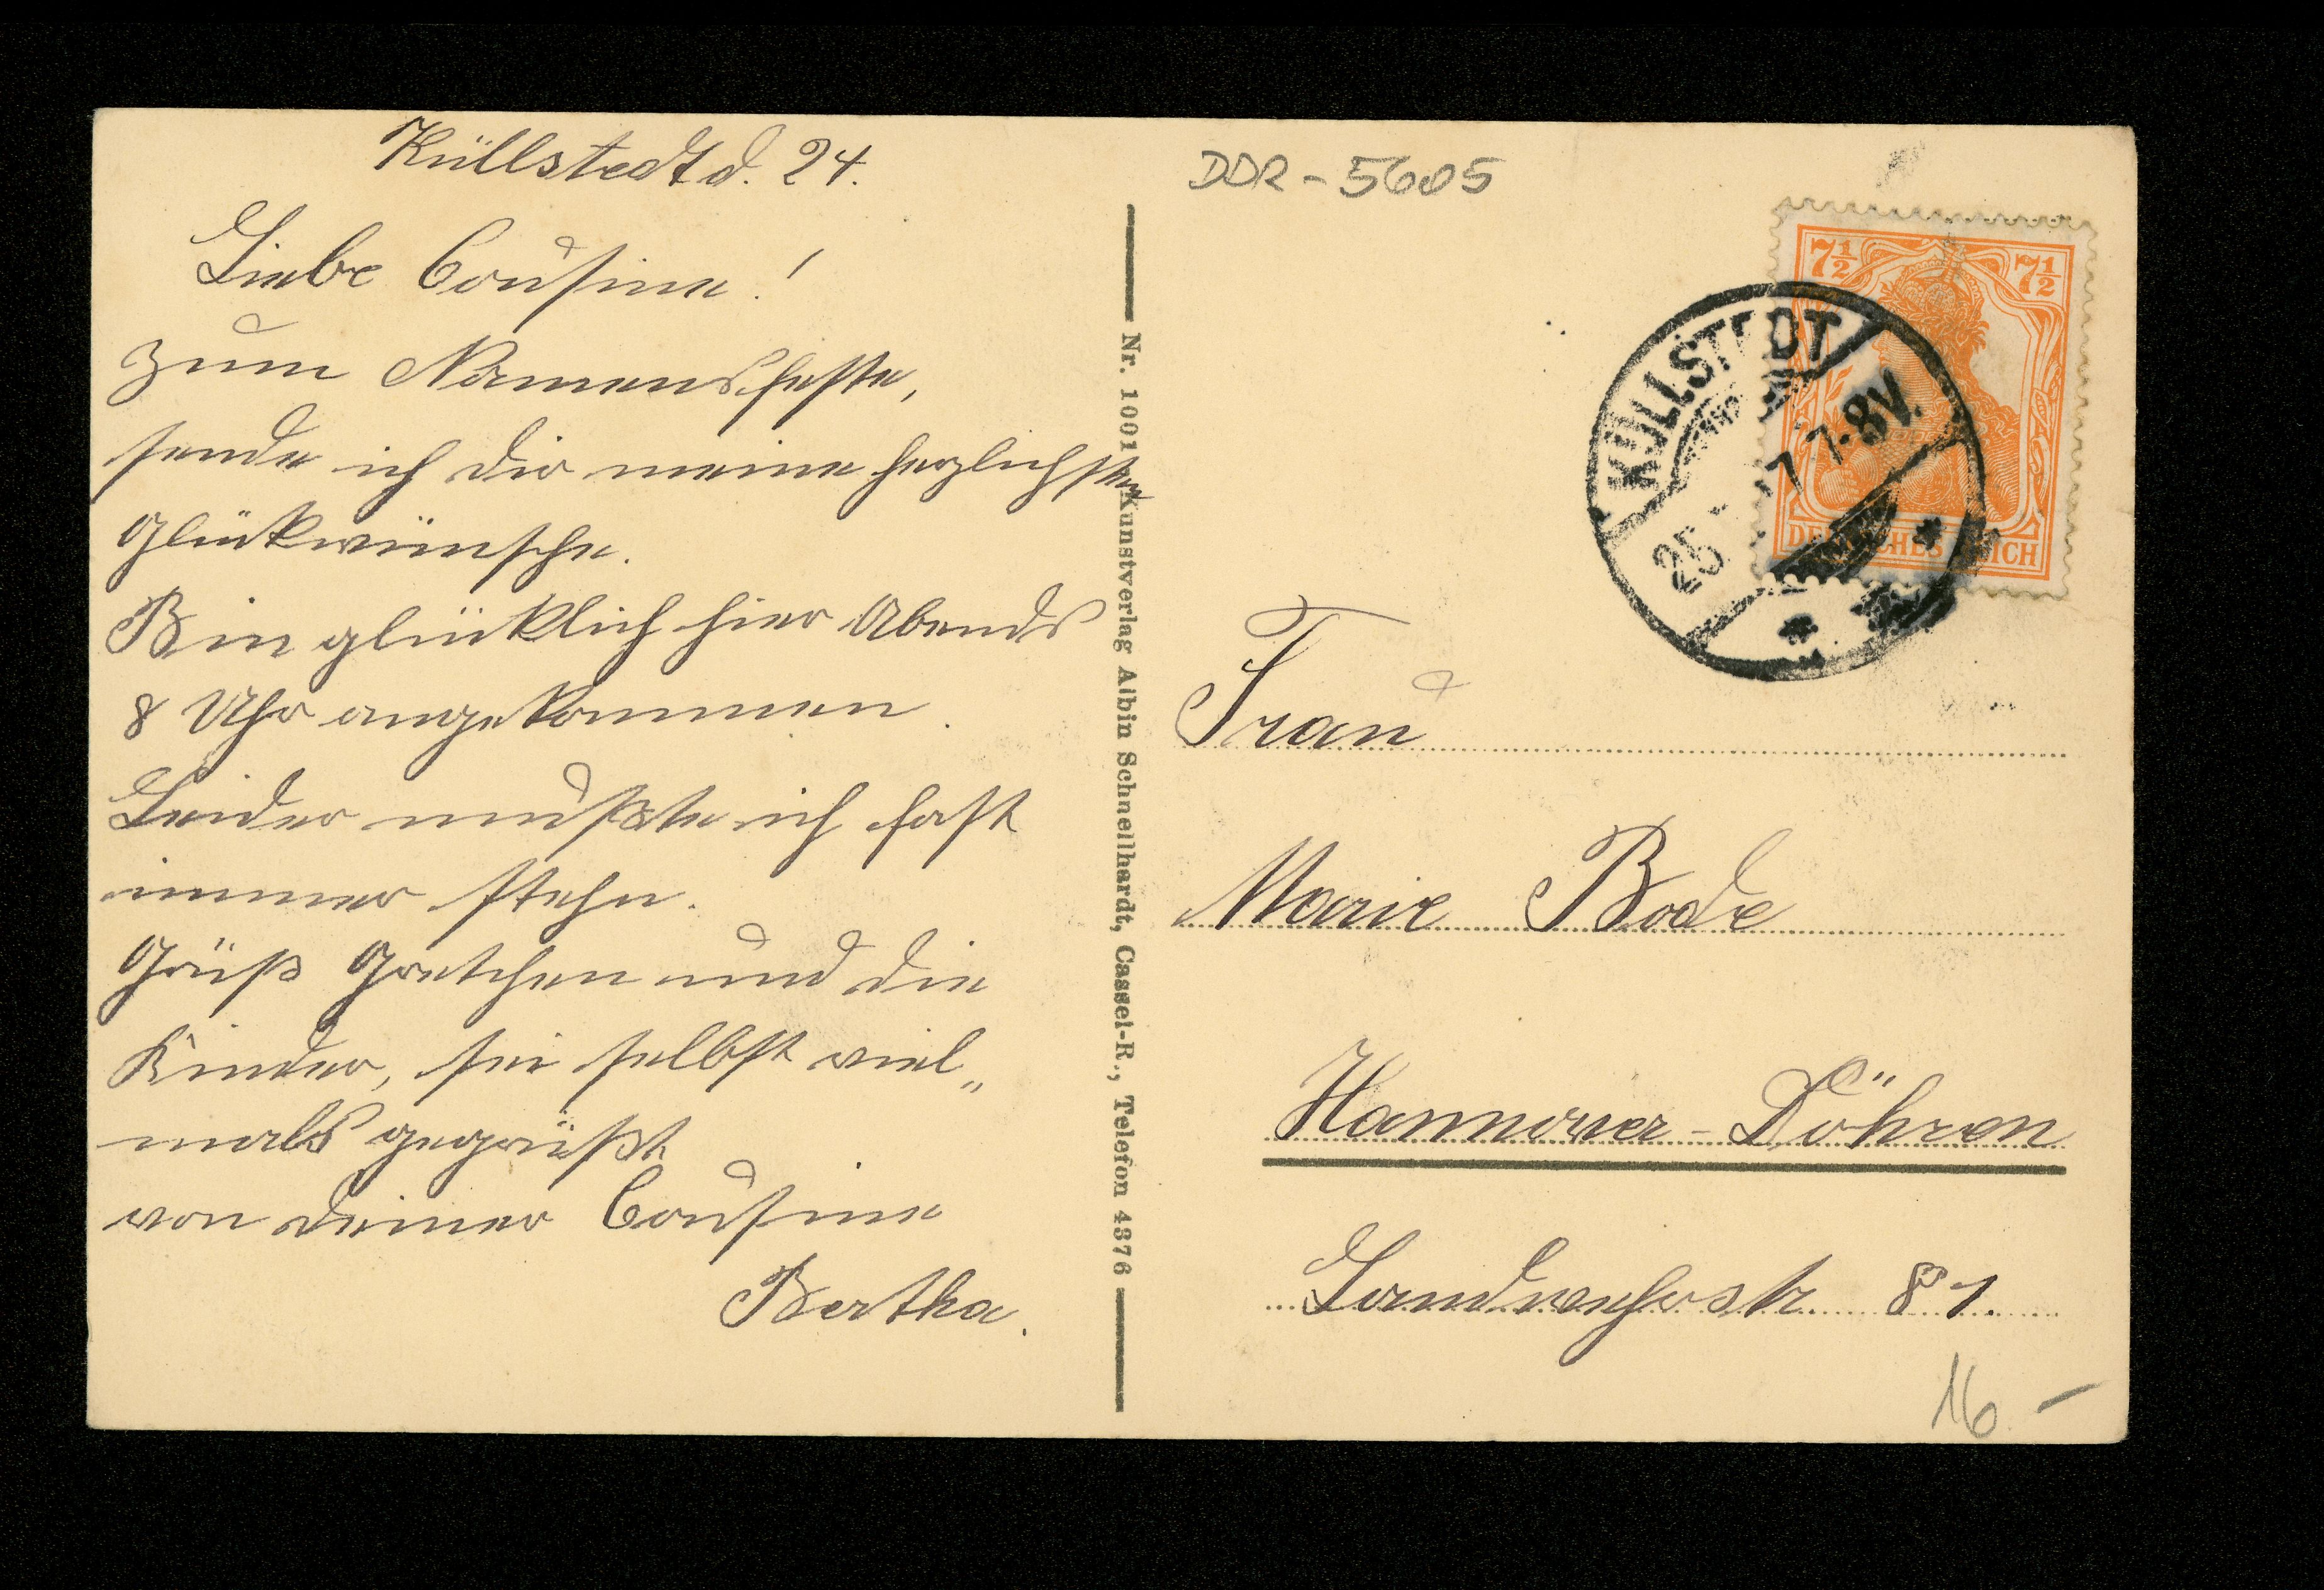 Küllstedt d. 24.
Liebe Cousine!
Zum Namensfeste,
sende ich dir meine herzlichsten
Glückwünsche.
Bin glücklich hier Abends
8 Uhr angekommen.
Leider mußte ich fast
immer stehn.
Grüß Gretchen und die
Kinder, sei selbst viel„
mals gegrüßt
von deiner Cousine
Bertha.
Nr. 1001 Kunstverlag Albin Schnellhardt, Cassel-R., Telefon 4376
DDR - 5605
7½ 7½
DEUTSCHES REICH
KÜLLSTEDT
25 7 7-8V.
Frau
Marie Bode
Hannover-Döhren
Landwehrstr 81.
16.-